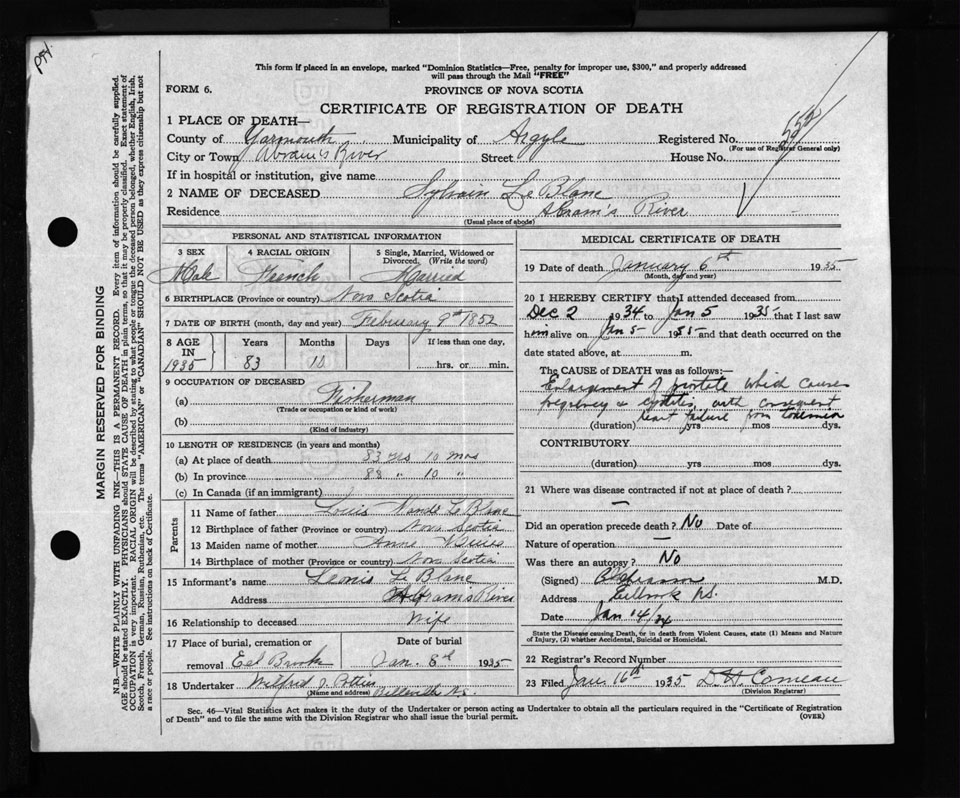 This form if placed in an envelope, marked "Dominion Statistics—Free, penalty for improper use, $300," and properly addressed
will pass through the Mail "FREE"
FORM 6.
PROVINCE OF NOVA SCOTIA
CERTIFICATE OF REGISTRATION OF DEATH
1 PLACE OF DEATH—
County of Yarmouth Municipality of Argyle Registered No.
(For use of Registrar General only)
City or Town Abram's River Street House No.
If in hospital or institution, give name
2 NAME OF DECEASED Sylvain LeBlanc
Residence Abram's River
(Usual place of abode)
PERSONAL AND STATISTICAL INFORMATION
3 SEX 4 RACIAL ORIGIN 5 Single, Married, Widowed or
Divorced. (Write the word)
Male French Married
6 BIRTHPLACE (Province or country) Nova Scotia
7 DATE OF BIRTH (month, day and year) February 9th 1852
8 AGE IN Years Months Days If less than one day,
1935 83 10 hrs. or min.
9 OCCUPATION OF DECEASED
(a) Fisherman
(Trade or occupation or kind of work)
(b)
(Kind of industry)
10 LENGTH OF RESIDENCE (in years and months)
(a) At place of death 83 yrs 10 mos
(b) In province 83 " 10 "
(c) In Canada (if an immigrant)
Parents
11 Name of father Louis LeBlanc
12 Birthplace of father (Province or country) Nova Scotia
13 Maiden name of mother Anne
14 Birthplace of mother (Province or country) Nova Scotia
15 Informant's name LeBlanc
Address Abram's River
16 Relationship to deceased Wife
17 Place of burial, cremation or Date of burial
removal Eel Brook Jan. 8th 1935
18 Undertaker Wilfred J. Pottier
(Name and address) Belleville N.S.
MEDICAL CERTIFICATE OF DEATH
19 Date of death January 6th 1935
(Month, day and year)
20 I HEREBY CERTIFY that I attended deceased from
Dec 2 1934 to Jan 5 1935 that I last saw
him alive on Jan 5 1935 and that death occurred on the
date stated above, at m.
The CAUSE OF DEATH was as follows:—
Enlargement of prostate which causes
cystitis, with consequent
heart failure from toxemia
(duration) yrs mos dys.
CONTRIBUTORY
(duration) yrs mos dys.
21 Where was disease contracted if not at place of death?
—
Did an operation precede death? No Date of
Nature of operation —
Was there an autopsy? No
(Signed) M.D.
Address Eelbrook N.S.
Date Jan 14/34
State the Disease causing Death, or in death from Violent Causes, state (1) Means and Nature
of Injury, (2) whether Accidental, Suicidal or Homicidal.
22 Registrar's Record Number
23 Filed Jan 16th 1935 D. H. Comeau
(Division Registrar)
Sec. 46—Vital Statistics Act makes it the duty of the Undertaker or person acting as Undertaker to obtain all the particulars required in the "Certificate of Registration
of Death" and to file the same with the Division Registrar who shall issue the burial permit.
(OVER)
MARGIN RESERVED FOR BINDING
N.B.—WRITE PLAINLY WITH UNFADING INK—THIS IS A PERMANENT RECORD. Every item of information should be carefully supplied.
AGE should be stated EXACTLY. PHYSICIANS should STATE CAUSE OF DEATH in plain terms, so that it may be properly classified. Exact statement of
OCCUPATION is very important. RACIAL ORIGIN will be described by stating to what people or tongue the deceased person belonged, whether English, Irish,
Scotch, French, German, Russian, Ruthenian, etc. The terms "AMERICAN" or "CANADIAN" SHOULD NOT BE USED as they express citizenship but not
a race or people. See instructions on back of Certificate.